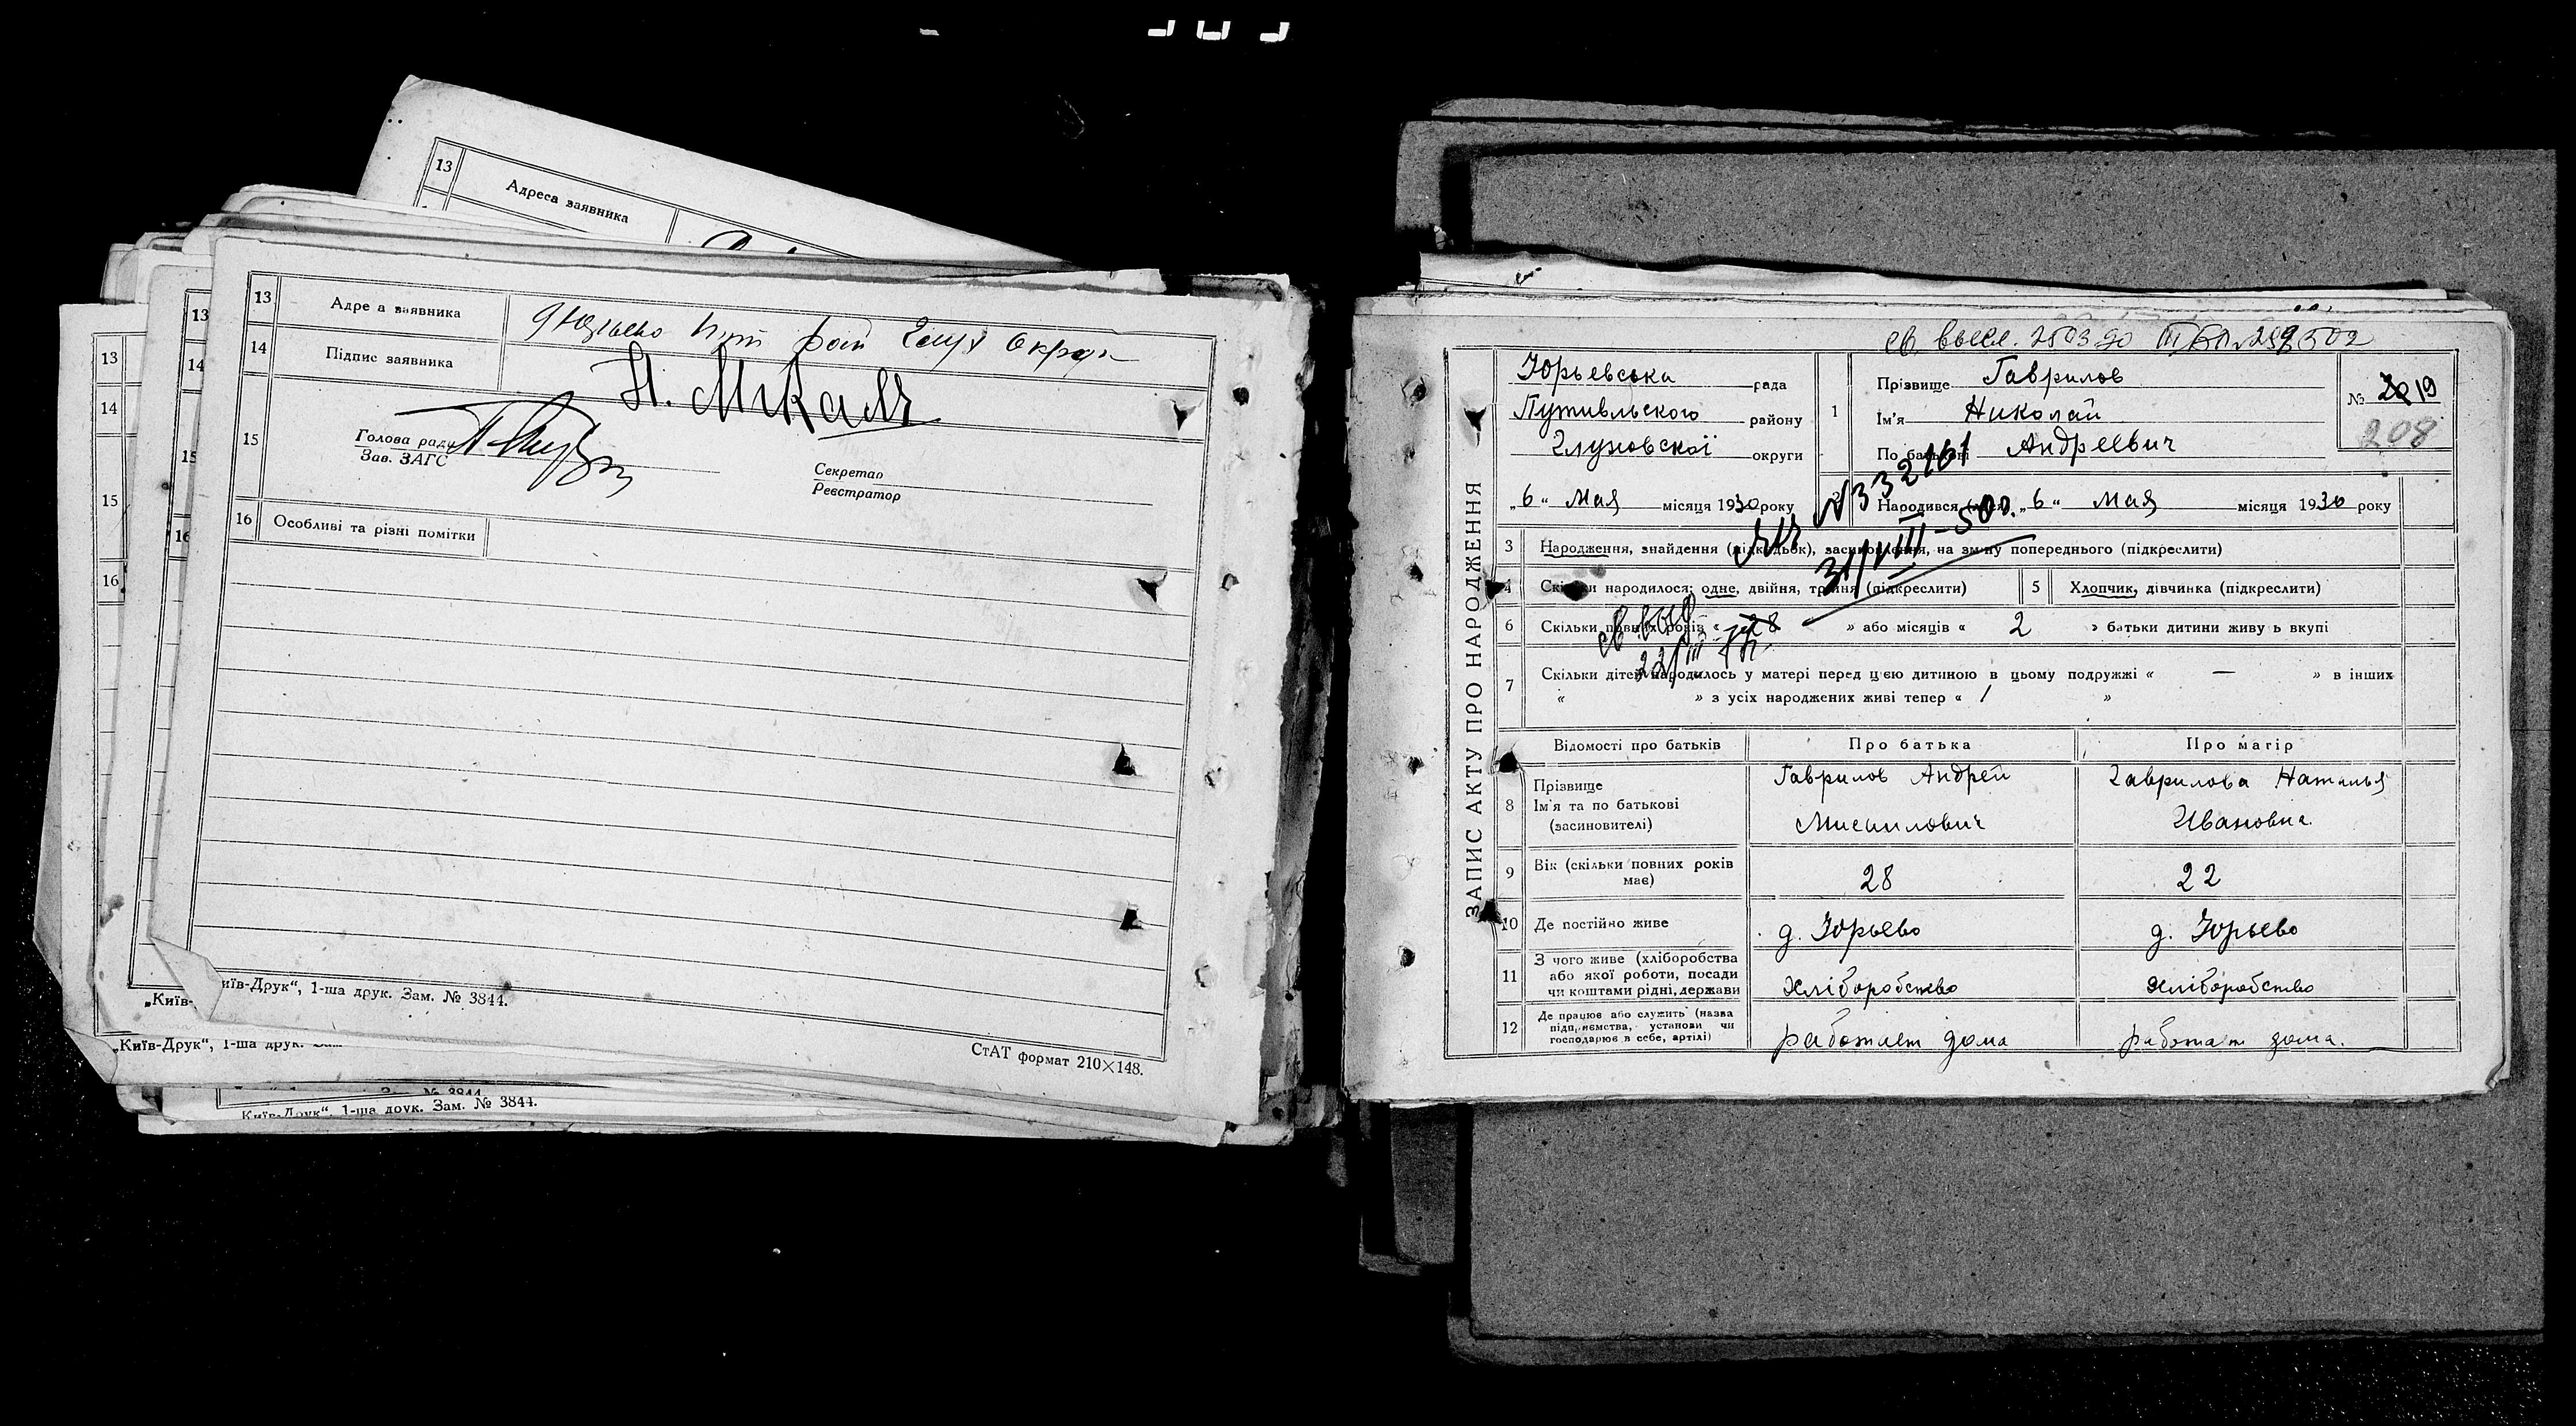 13 Адреса заявника
13 Адре а заявника
14 Підпис заявника Н. Микаль
15 Голова ради
Зав. ЗАГС
Секретар
Реєстратор
16 Особливі та різні помітки
13
14
15
16
13
14
15
16
„Київ-
иїв-Друк“, 1-ша друк. Зам. № 3844.
СтАТ формат 210×148.
„Київ-Друк“, 1-ша друк.
Зам. № 3844.
Київ-Друк“, 1-ша друк. Зам. № 3844.
ЗАПИС АКТУ ПРО НАРОДЖЕННЯ
Юрьевська рада
Путивльского району
Глуховскої округи
„6“ Мая місяця 1930 року
1 Прізвище Гаврилов
Ім'я Николай
По батькові Андреевич
№ 19
208
N 332161
Народився „6“ Мая місяця 1930 року
3 Народження, знайдення (підкидьок), засиновлення, на зміну попереднього (підкреслити)
4 Скільки народилося: одне, двійня, тройня (підкреслити)
5 Хлопчик, дівчинка (підкреслити)
6 Скільки повних років « » або місяців « 2 » батьки дитини живу ь вкупі
7 Скільки дітей народилось у матері перед цією дитиною в цьому подружжі « — » в інших
« » з усіх народжених живі тепер « 1 »
Відомості про батьків Про батька Про матір
8 Прізвище Гаврилов Андрей Гаврилова Наталья
Ім'я та по батькові
(засиновителі) Ивановна
9 Вік (скільки повних років
має) 28 22
10 Де постійно живе д. Юрьево д. Юрьево
11 З чого живе (хліборобства
або якої роботи, посади
чи коштами рідні, держави Хліборобство Хліборобство
12 Де працює або служить (назва
підприємства, установи чи
господарює в себе, артілі) работает дома работает дома.